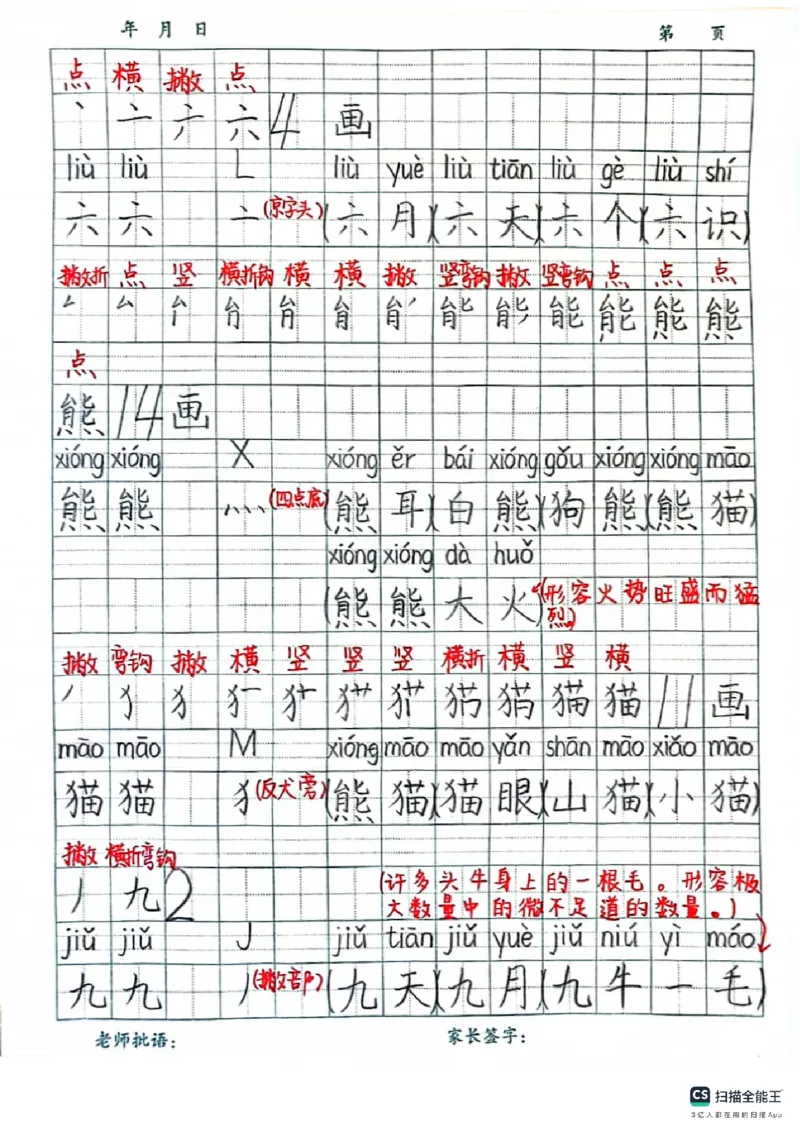 年 月 日 第 页
点 横 撇 点
丶 亠 六 六 4 画
liù liù L liù yuè liù tiān liù gè liù shí
六 六 亠 (京字头) (六 月) (六 天) (六 个) (六 识)
撇折 点 竖 横折钩 横 横 撇 竖弯钩 撇 竖弯钩 点 点 点
点
熊 14 画
xióng xióng X xióng ěr bái xióng gǒu xióng xióng māo
熊 熊 灬 (四点底) (熊 耳) (白 熊) (狗 熊) (熊 猫)
xióng xióng dà huǒ
(熊 熊 大 火) (形容火势旺盛而猛
烈)
撇 弯钩 撇 横 竖 竖 竖 横折 横 竖 横
猫 猫 11 画
māo māo M xióng māo māo yǎn shān māo xiǎo māo
猫 猫 犭 (反犬旁) (熊 猫) (猫 眼) (山 猫) (小 猫)
撇 横折弯钩
丿 九 2
(许多头牛身上的一根毛。形容极
大数量中的微不足道的数量。)
jiǔ jiǔ J jiǔ tiān jiǔ yuè jiǔ niú yì máo
九 九 丿 (撇部) (九 天) (九 月) (九 牛 一 毛)
老师批语: 家长签字:
CS 扫描全能王
3亿人都在用的扫描App